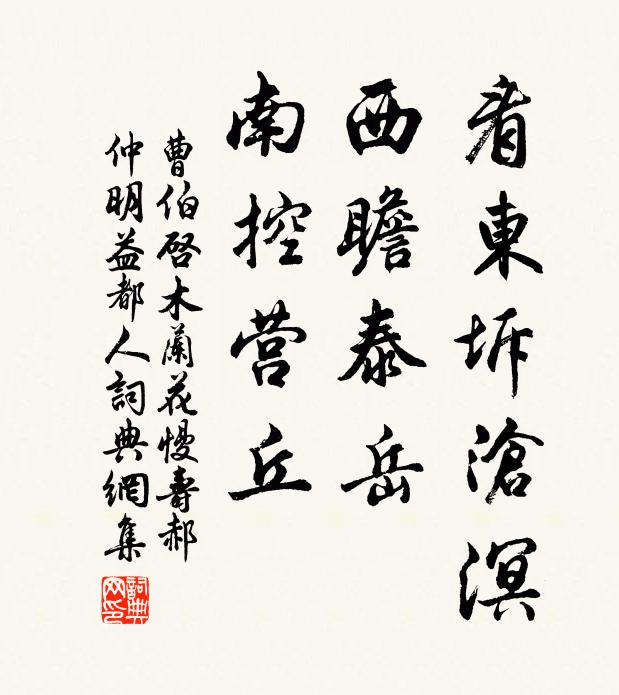 看東坼滄溟
西瞻泰岳
南控营丘
曹伯啓木蘭花慢壽郝
仲明益都人詞典網集
詞典
网印